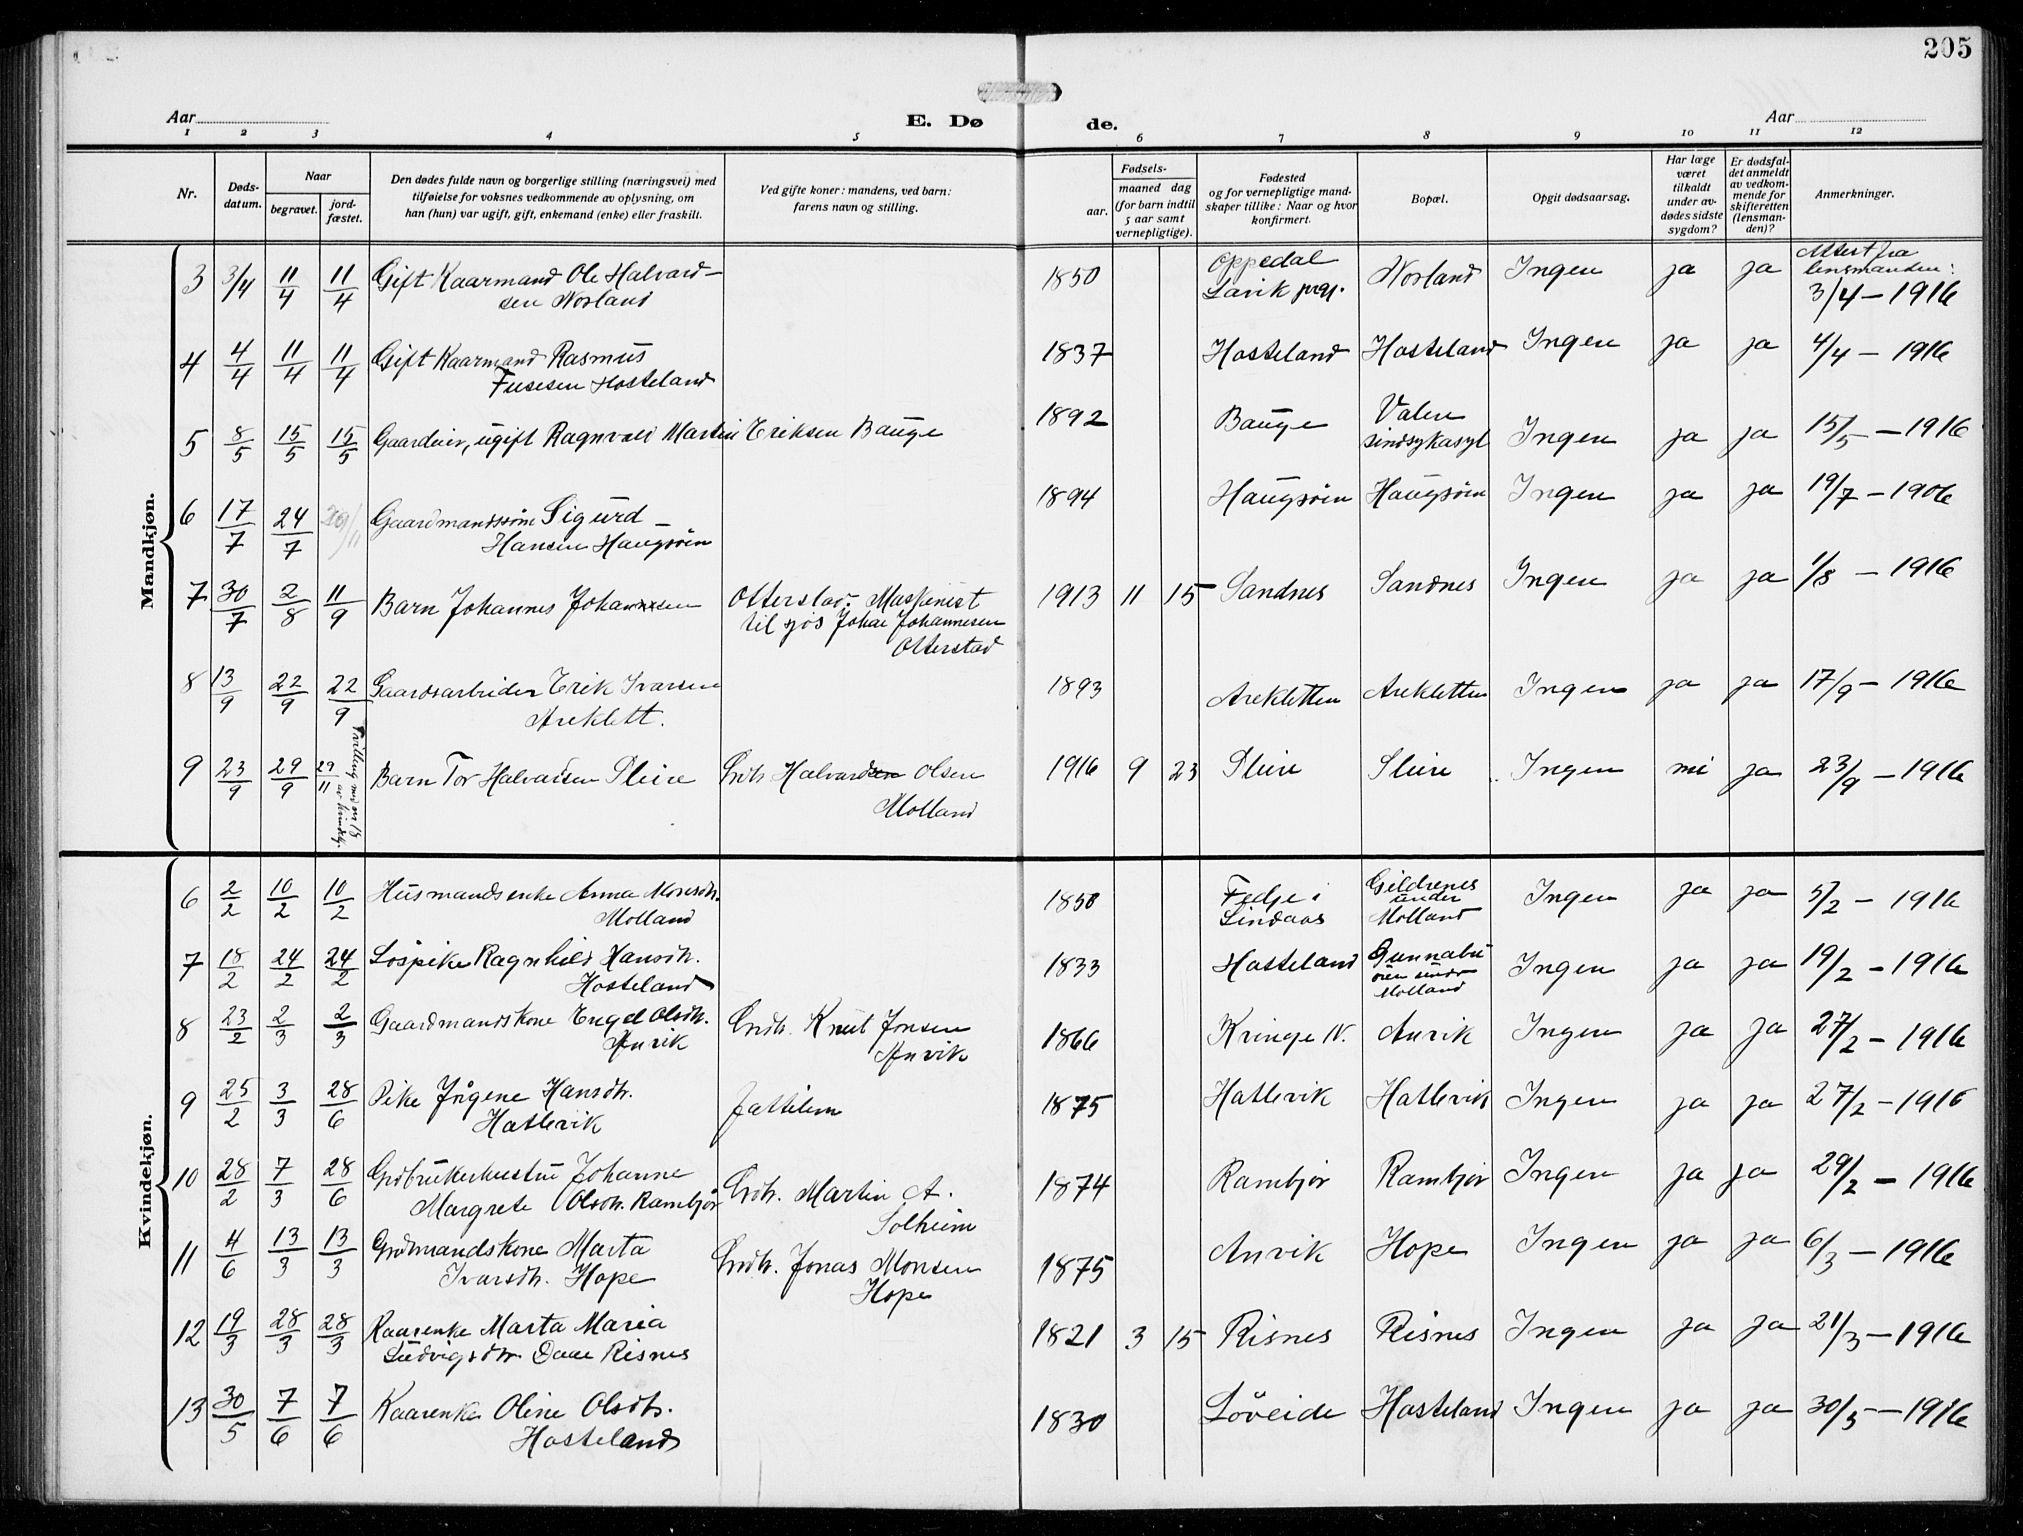 205
Aar
E. Dø de.
Aar
1 2 3 4 5 6 7 8 9 10 11 12
Nr.
Døds-
datum.
Naar
begravet.
jord-
fæstet.
Den dødes fulde navn og borgerlige stilling (næringsvei) med
tilføielse for voksnes vedkommende av oplysning, om
han (hun) var ugift, gift, enkemand (enke) eller fraskilt.
Ved gifte koner: mandens, ved barn:
farens navn og stilling.
Fødsels-
aar.
maaned dag
(for barn indtil
5 aar samt
vernepligtige).
Fødested
og for vernepligtige mand-
skaper tillike: Naar og hvor
konfirmert.
Bopæl.
Opgit dødsaarsag.
Har læge
været
tilkaldt
under av-
dødes sidste
sygdom?
Er dødsfal-
det anmeldt
av vedkom-
mende for
skifteretten
(lensman-
den)?
Anmerkninger.
Mandkjøn.
3 3/4 11/4 11/4 Gift Kaarmand Ole Halvard-
sen Norland
1850 Oppedal
Lavik prgj. Norland Ingen ja ja Attest fra
lensmanden:
3/4 - 1916
4 4/4 11/4 11/4 Gift Kaarmand Rasmus
Hosteland
1837 Hosteland Hosteland Ingen ja ja 4/4 - 1916
5 8/5 15/5 15/5 ugift Ragnvald Martin Eriksen Bauge
1892 Bauge Valen
sindsykasyl Ingen ja ja 15/5 - 1916
6 17/7 24/7 Gaardmandssøn Sigurd
Hansen Haugsöen
1894 Haugsöen Haugsöen Ingen ja ja 19/7 - 1906
7 30/7 2/8 11/9 Barn Johannes Johannesen Otterstad. Maskinist
til sjös Johan Johannesen
Otterstad
1913 11 15 Sandnes Sandnes Ingen ja ja 1/8 - 1916
8 13/9 22/9 22/9 Gaardsarbeider Erik Ivarsen
Areklett.
1893 Arekletten Arekletten Ingen ja ja 17/9 - 1916
9 23/9 29/9 29/11 Tvilling med
av kvindekj.
Barn Tor Halvardsen Sleire Grdb. Halvardsen Olsen
Molland
1916 9 23 Sleire Sleire Ingen nei ja 23/9 - 1916
Kvindekjøn.
6 2/2 10/2 10/2 Husmandsenke Anna Monsdtr.
Molland
1850 Fedje i
Lindaas Gildrenes
under
Molland Ingen ja ja 5/2 - 1916
7 18/2 24/2 24/2 Löspike Ragnhild Hansdtr.
Hosteland
1833 Hosteland Gunnabu
öen under
Molland Ingen ja ja 19/2 - 1916
8 23/2 2/3 2/3 Gaardmandskone Engel Olsdtr.
Anvik Grdbr. Knut Jonsen
Anvik
1866 Kringe N. Anvik Ingen ja ja 27/2 - 1916
9 25/2 3/3 28/6 Pike Jörgene Hansdtr.
Hatlevik Fattilem
1875 Hatlevik Hatlevik Ingen ja ja 27/2 - 1916
10 28/2 7/3 28/6 Grdbrukerhustru Johanne
Margrete Olsdtr. Rambjör Grdbr. Martin A.
Solheim
1874 Rambjör Rambjör Ingen ja ja 29/2 - 1916
11 4/6 13/3 13/3 Grdmandskone Marta
Ivarsdtr. Hope Grdbr. Jonas Monsen
Hope
1875 Anvik Hope Ingen ja ja 6/3 - 1916
12 19/3 28/3 28/3 Kaarenke Marta Maria
Ludvigsdtr. Daae Risnes
1821 3 15 Risnes Risnes Ingen ja ja 21/3 - 1916
13 30/5 7/6 7/6 Kaarenke Oline Olsdtr.
Hosteland
1830 Löveide Hosteland Ingen ja ja 30/5 - 1916